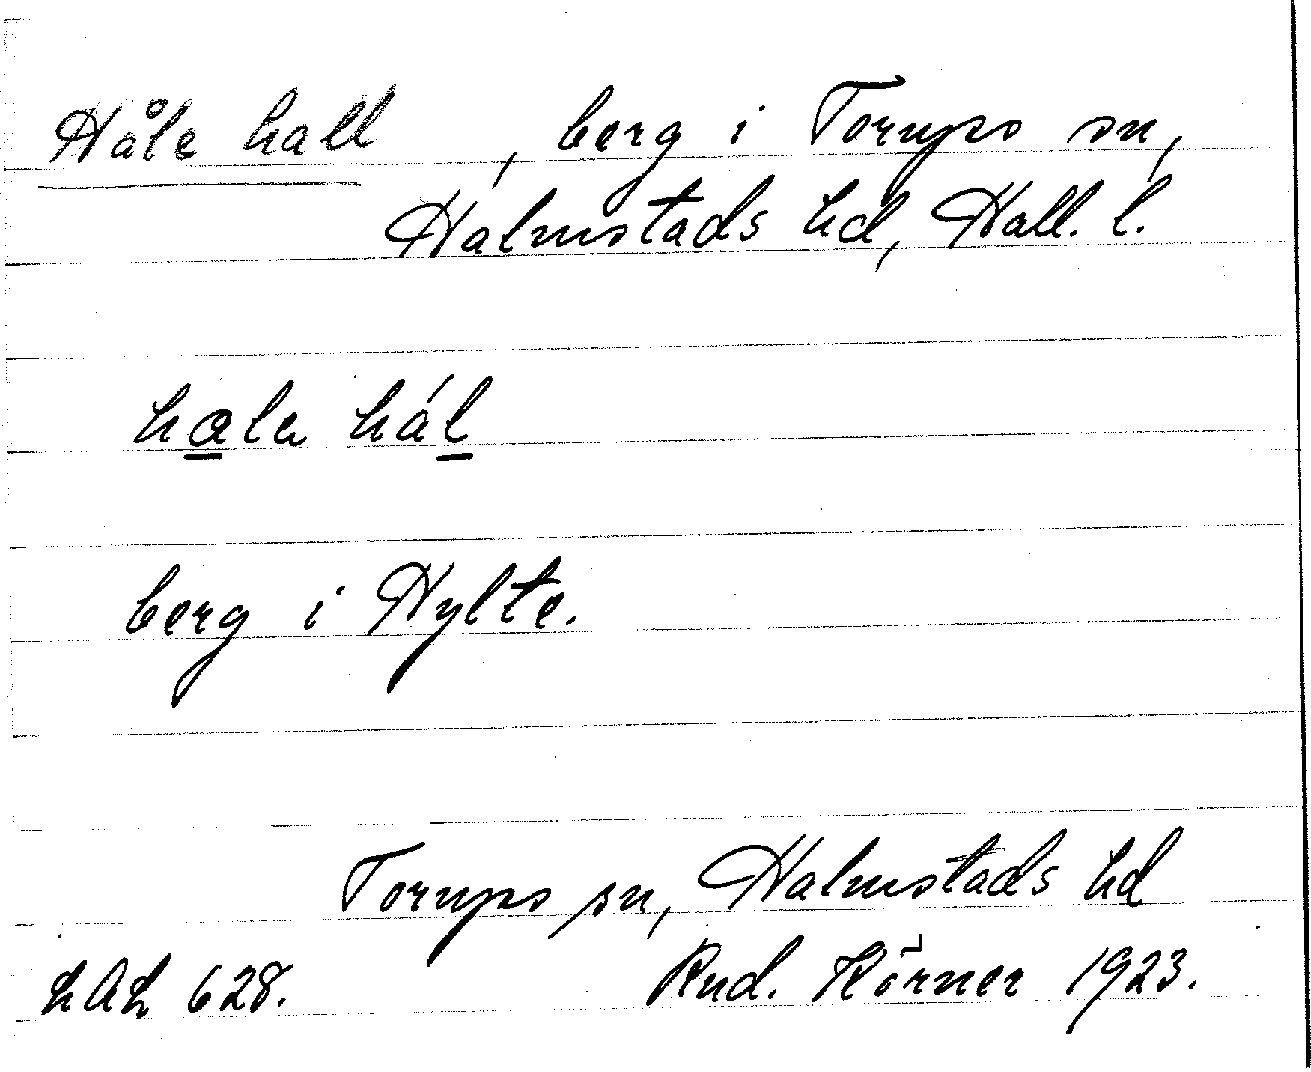 Håle hall, berg i Torups sn,
Halmstads hd, Hall. l.
hala hál
berg i Hylte.
Torups sn, Halmstads hd
LAL 628. Rud. Körner 1923.